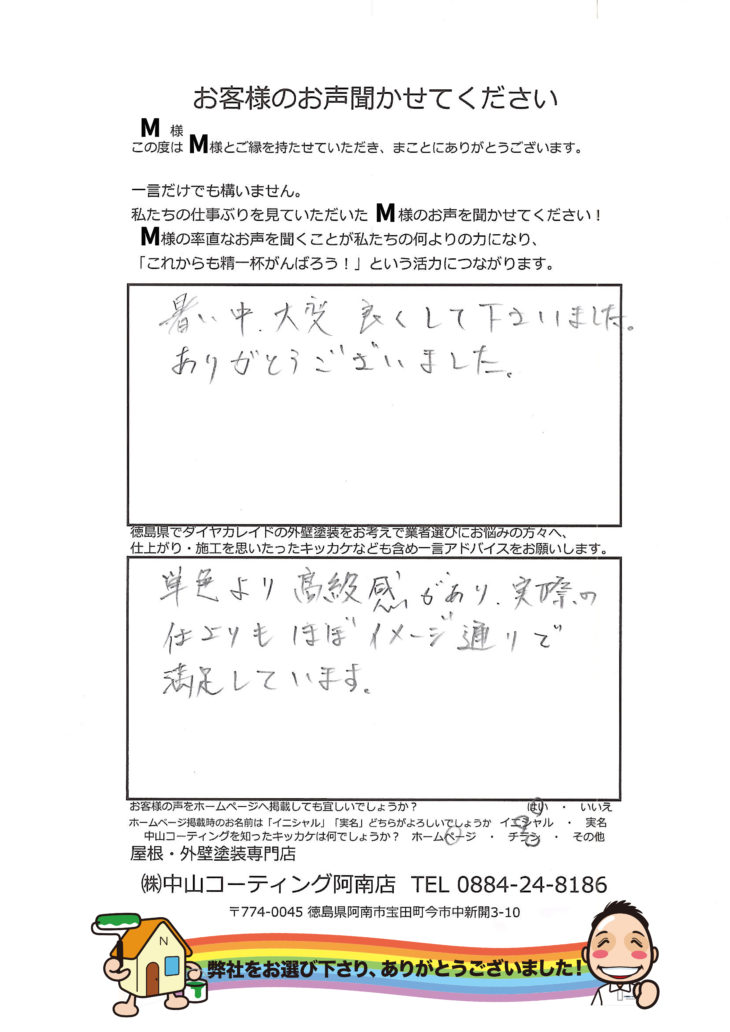 お客様のお声聞かせてください
M 様
この度は M様とご縁を持たせていただき、まことにありがとうございます。
一言だけでも構いません。
私たちの仕事ぶりを見ていただいた M様のお声を聞かせてください！
M様の率直なお声を聞くことが私たちの何よりの力になり、
「これからも精一杯がんばろう！」という活力につながります。
暑い中、大変 良くして下さいました。
ありがとうございました。
徳島県でダイヤカレイドの外壁塗装をお考えで業者選びにお悩みの方々へ、
仕上がり・施工を思いたったキッカケなども含め一言アドバイスをお願いします。
単色より高級感があり、実際の
仕上りもほぼイメージ通りで
満足しています。
お客様の声をホームページへ掲載しても宜しいでしょうか？ はい ・ いいえ
ホームページ掲載時のお名前は「イニシャル」「実名」どちらがよろしいでしょうか イニシャル ・ 実名
中山コーティングを知ったキッカケは何でしょうか？ ホームページ ・ チラシ ・ その他
屋根・外壁塗装専門店
㈱中山コーティング阿南店 TEL 0884-24-8186
〒774-0045 徳島県阿南市宝田町今市中新開3-10
N
弊社をお選び下さり、ありがとうございました！